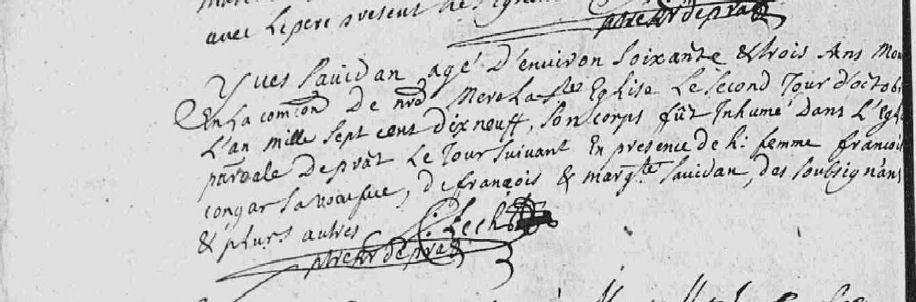 avec Le pere present ne signant
ptre cur de prat
Yves Savidan agé D'environ soixante & trois Ans Mou
En La com̃on De nrẽ Mere La ste Eglise Le second Jour d'octob
L'an mille sept cent Dix neuff, son corps fût Inhumé Dans L'Egl
parõale De prât Le Jour suivant En presence de h: femme francois
congar sa veufve, de françois & margte Savidan, des soubsignans
& plurs autres
ptre cur de prat